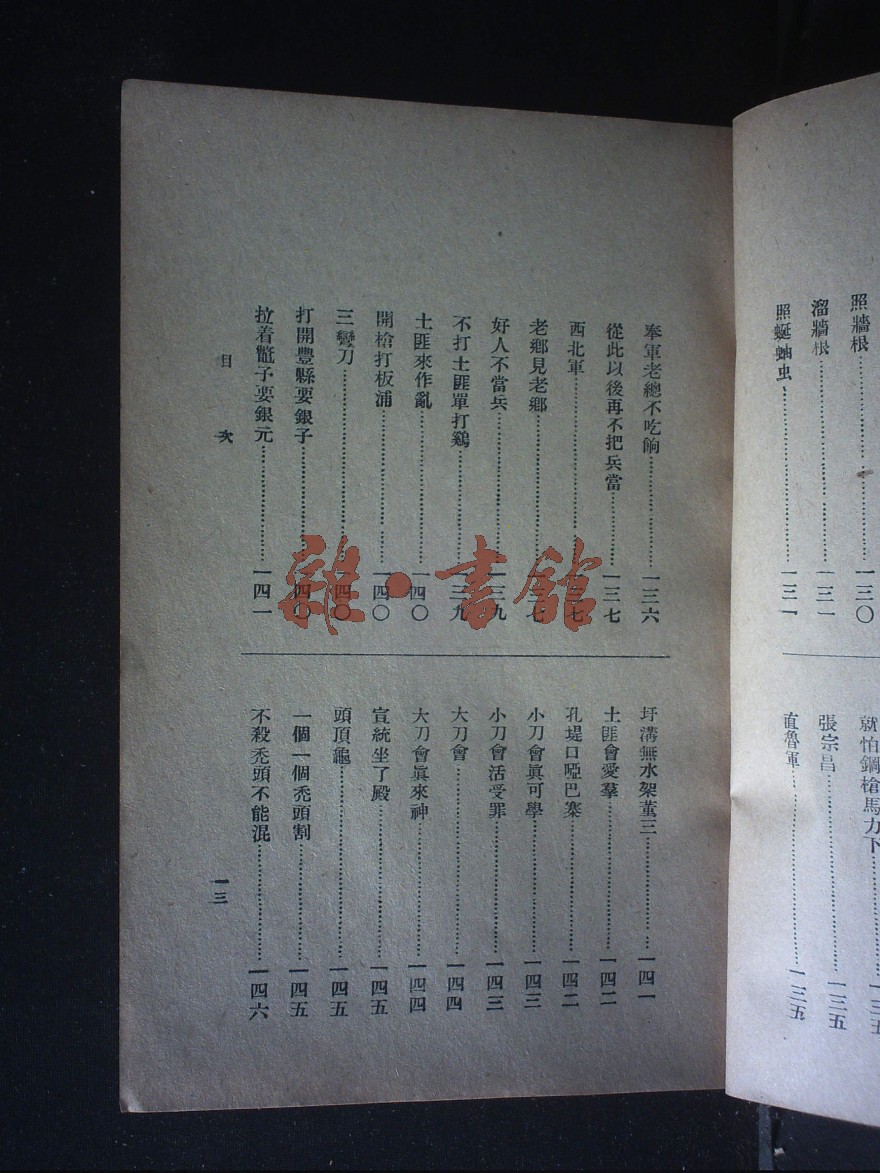 照牆根……一三〇
溜牆根……一三一
照蜒蚰虫……一三一
就怕鋼槍馬力下……一三五
張宗昌……一三五
直魯軍……一三五
奉軍老總不吃餉……一三六
從此以後再不把兵當……一三七
西北軍……一三七
老鄉見老鄉……一三七
好人不當兵……一三九
不打土匪單打鷄……一三九
土匪來作亂……一四〇
開槍打板浦……一四〇
三彎刀……一四〇
打開豐縣要銀子……一四〇
拉着氈子要銀元……一四一
圩溝無水架董三……一四一
土匪會愛羣……一四二
孔堤口啞巴寨……一四二
小刀會眞可學……一四三
小刀會活受罪……一四三
大刀會……一四四
大刀會眞來神……一四四
宣統坐了殿……一四五
頭頂龜……一四五
一個一個禿頭割……一四五
不殺禿頭不能混……一四六
目次
一三
雜·書館